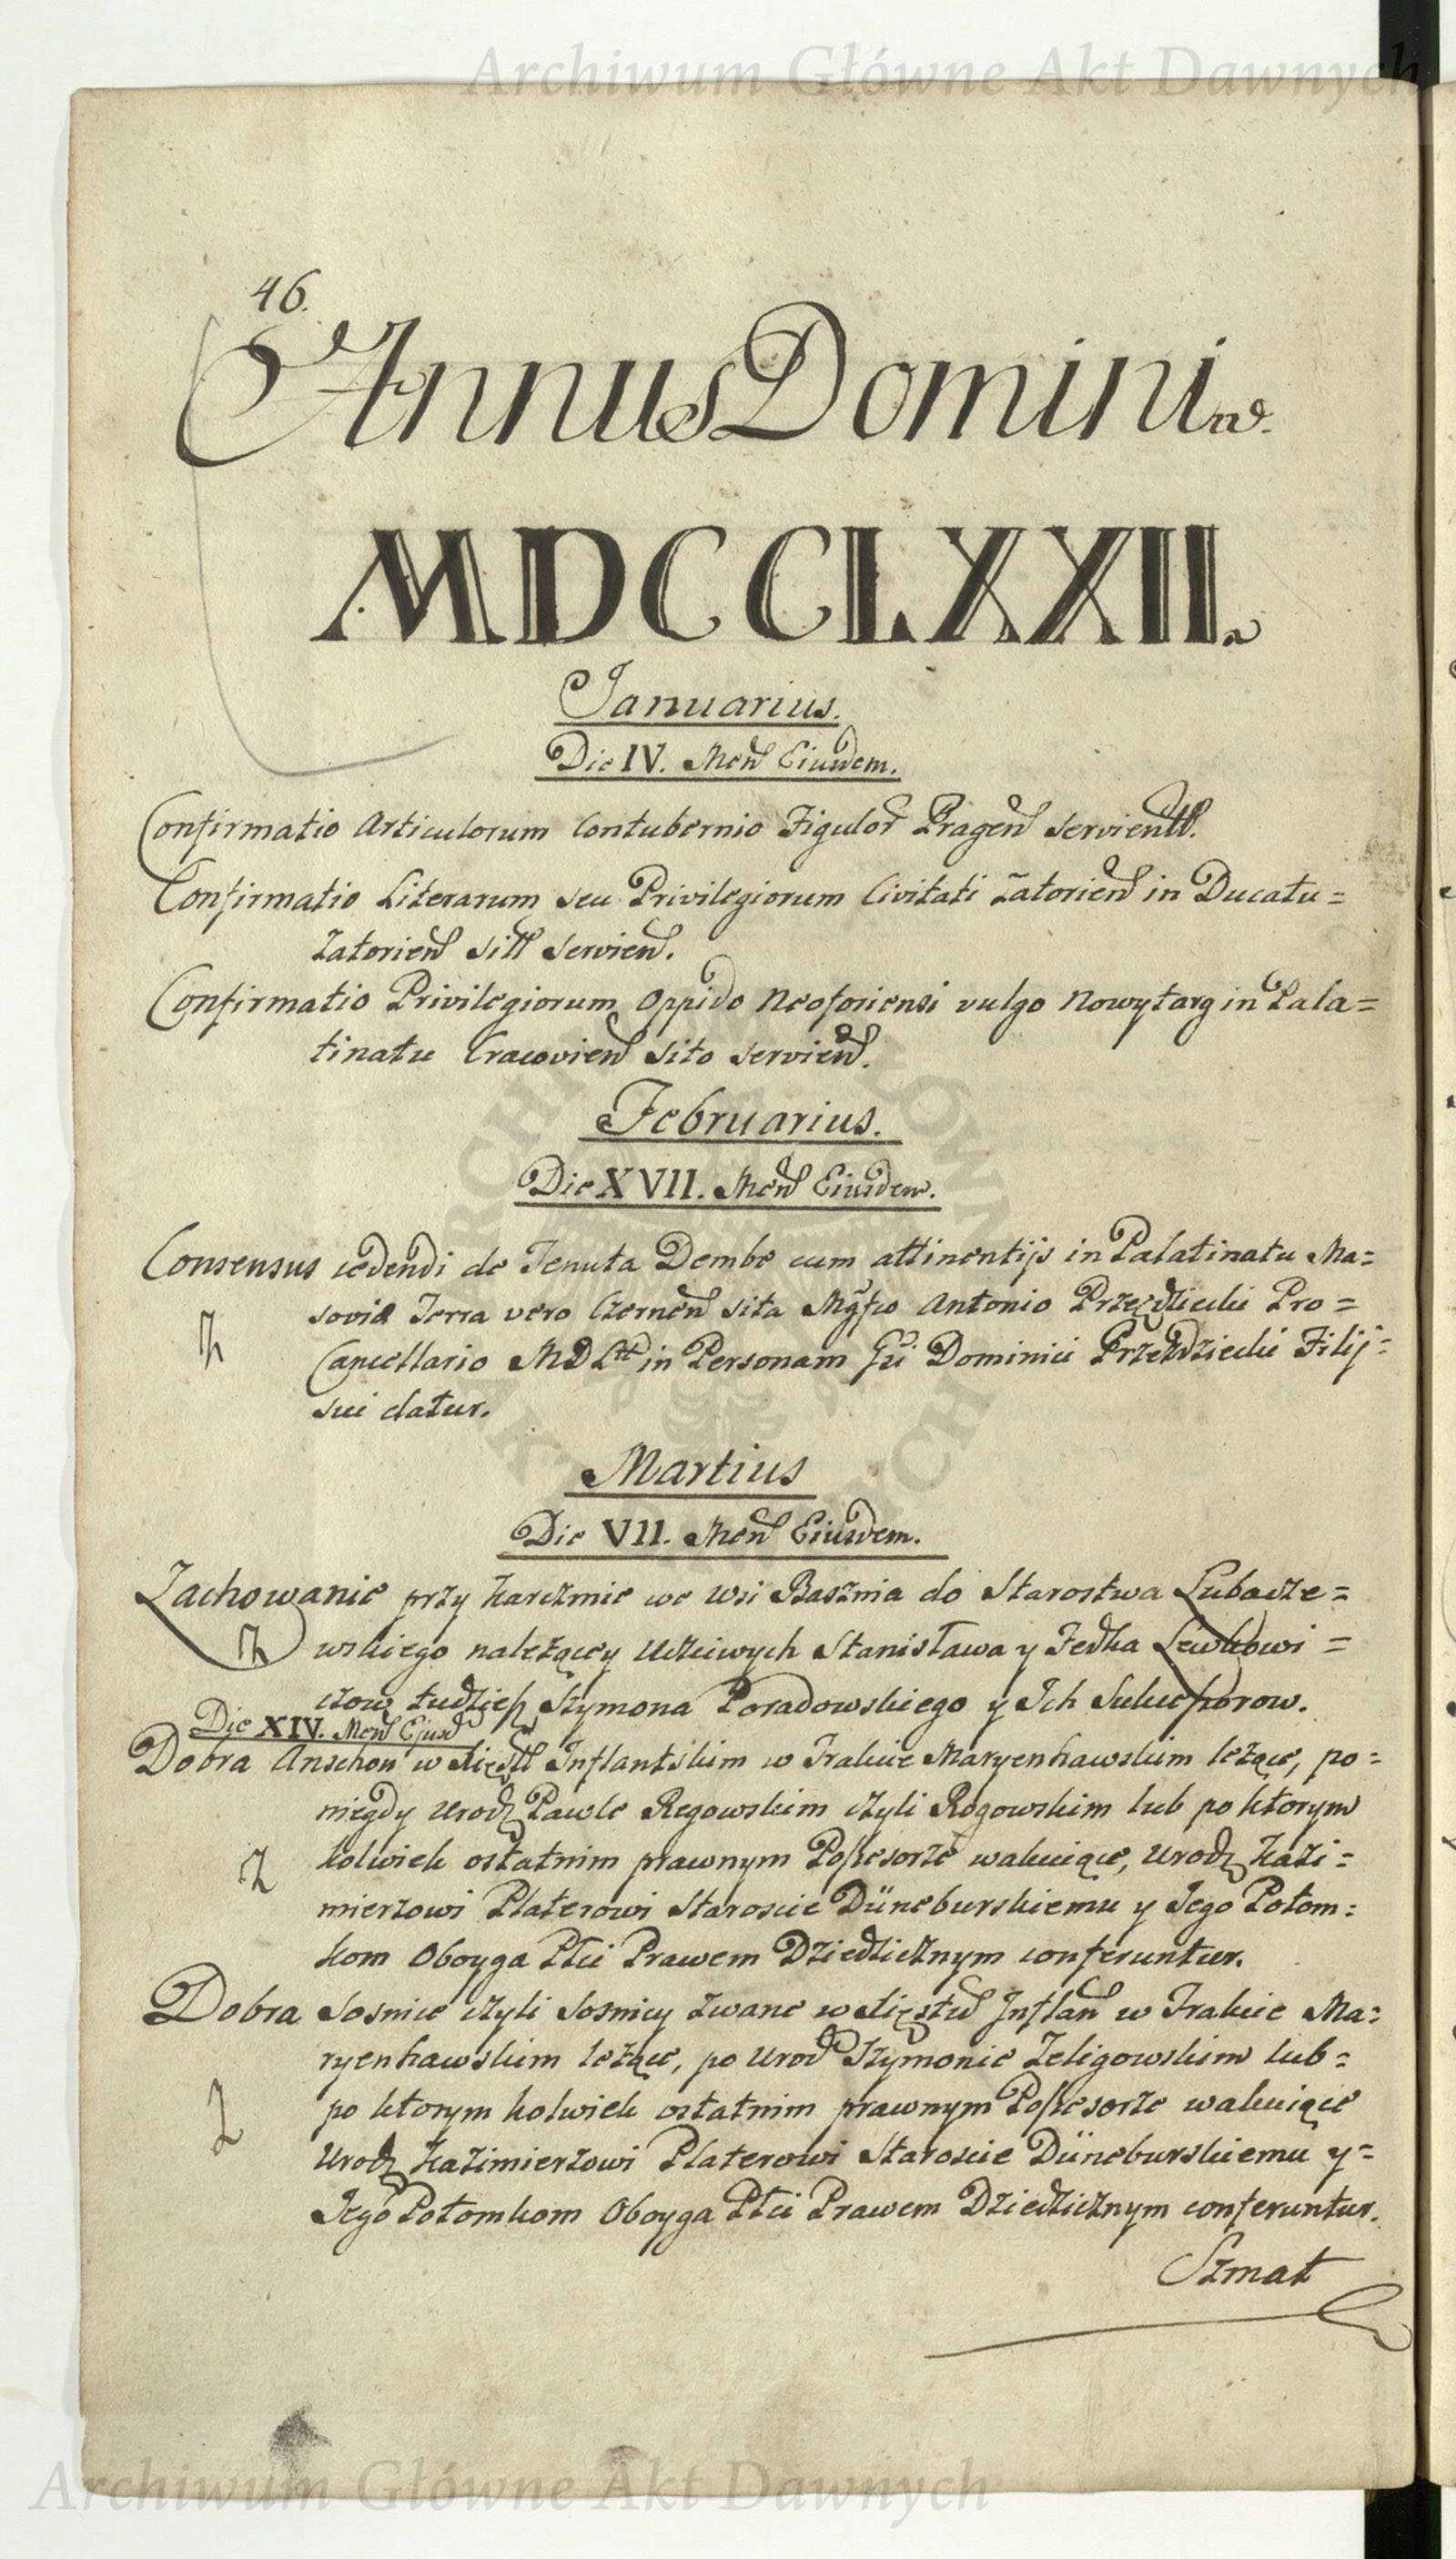 Archiwum Główne Akt Dawnych
46.
Annus Domini
MDCCLXXII.
Januarius.
Die IV. Men Eiusdem.
Confirmatio Articulorum Contubernio Figulor Pragen servientt.
Confirmatio Literarum seu Privilegiorum Civitati Zatorien in Ducatu=
Zatorien sitt servien.
Confirmatio Privilegiorum Oppido Neoforiensi vulgo Nowytarg in Pala=
tinatu Cracovien sito servien.
Februarius.
Die XVII. Men Eiusdem.
Consensus cedendi de Tenuta Dembe cum attinentijs in Palatinatu Ma=
sovia Terra vero Czernen sita Mgfco Antonio Przezdziecki Pro=
Cancellario MDLtt in Personam Gi Dominici Przezdziecki Filij=
sui datur.
Martius
Die VII. Men Eiusdem.
Zachowanie przy Karczmie we Wsi Basznia do Starostwa Lubacze=
wskiego należącey Uczciwych Stanisława y Fedka Lewkowi=
czow tudziesz Szymona Poradowskiego y Ich Sukcessorow.
Die XIV. Men Ejusd
Dobra Anschon w Xięstt Inflantskim w Trakcie Maryenhawskim leżące, po=
niegdy Urodz Pawle Regowskim czyli Rogowskim lub po ktorym
kolwiek ostatnim prawnym Possesorze wakuiące, Urodz Kazi=
mierzowi Platerowi Staroscie Düneburskiemu y Jego Potom=
kom Oboyga Płci Prawem Dziedzicznym conferuntur.
Dobra Sosnice czyli Sosnicy zwane w Xięstw Inflan w Trakcie Ma=
ryenhawskim leżące, po Urod Szymonie Zeligowskim lub=
po ktorym kolwiek ostatnim prawnym Possesorze wakuiące
Urodz Kazimierzowi Platerowi Staroscie Düneburskiemu y=
Jego Potomkom Oboyga Płci Prawem Dziedzicznym conferuntur.
Szmat
Archiwum Główne Akt Dawnych